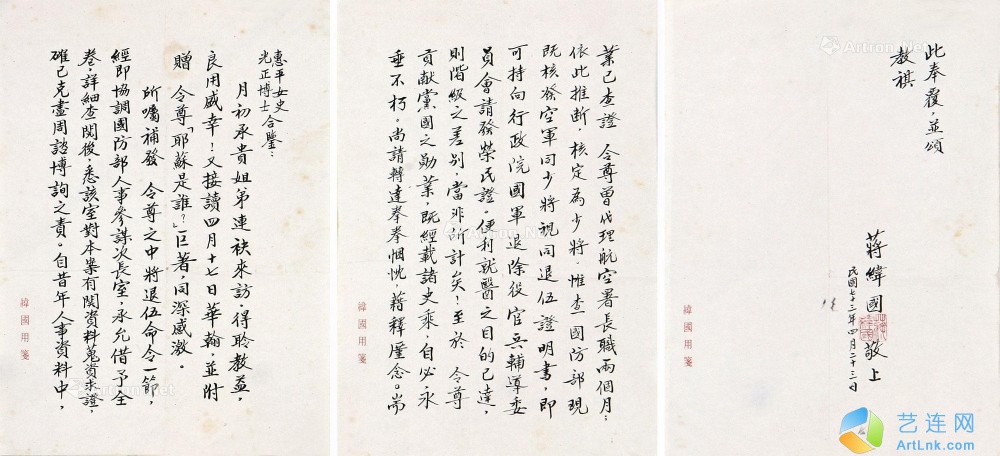 惠平女史
光正博士合鑒：
月初承貴姐弟連袂來訪，得聆教益，
良用感幸！又接讀四月十七日華翰，並附
贈　令尊「耶蘇是誰？」巨著，同深感激。
所囑補發　令尊之中將退伍命令一節，
經即協調國防部人事參謀次長室，承允借予全
卷，詳細查閱後，悉該室對本案有関資料蒐資求證，
確已克盡周諮博詢之責。自昔年人事資料中，
緯國用箋
業已查證　令尊曾代理航空署長職兩個月：
依此推断，核定為少將，惟查國防部現
既核發空軍同少將視同退伍證明書，即
可持向行政院國軍退除役官兵輔導委
員會請發榮民證。便利就醫之目的已達，
則階級之差別，當非所計矣！至於　令尊
貢献黨國之勛業，既經載諸史乘，自必永
垂不朽。尚請轉達拳拳悃忱，藉釋廑念。耑
緯國用箋
此奉覆，並頌
教祺
蔣緯國敬上
民國七十三年四月二十三日
緯國用箋
Artron.Net
艺连网
ArtLnk.com